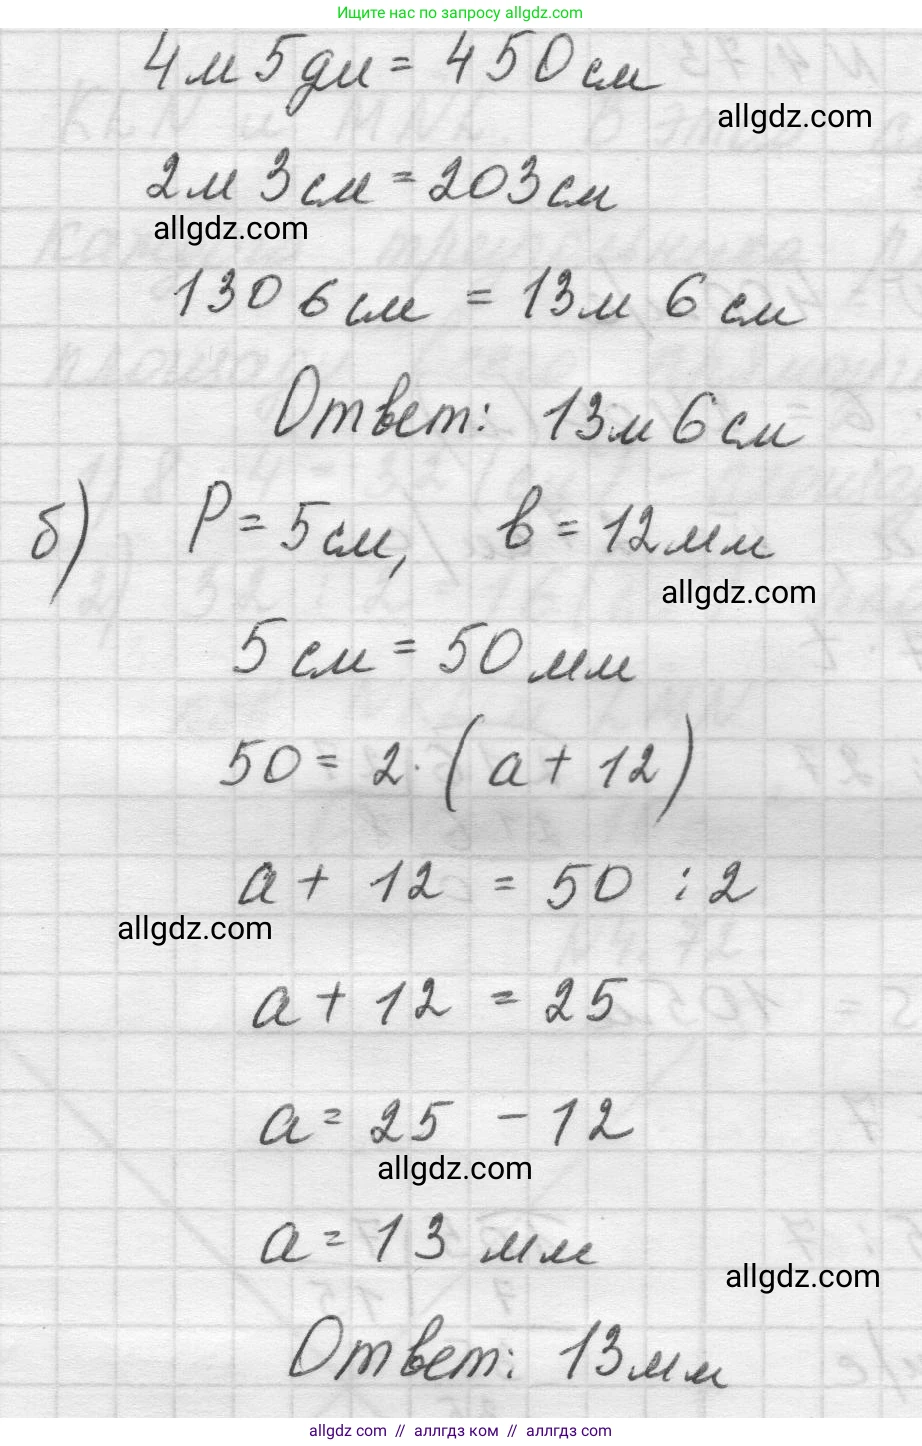 Ищите нас по запросу allgdz.com
4м 5дм = 450 см
allgdz.com
2м 3см = 203см
allgdz.com
1306см = 13м 6см
Ответ: 13м 6см
б) P = 5см, в = 12мм
allgdz.com
5см = 50мм
50 = 2 · (а + 12)
а + 12 = 50 : 2
allgdz.com
а + 12 = 25
а = 25 - 12
allgdz.com
а = 13 мм
allgdz.com
Ответ: 13мм
allgdz.com // аллгдз ком // allgdz.com